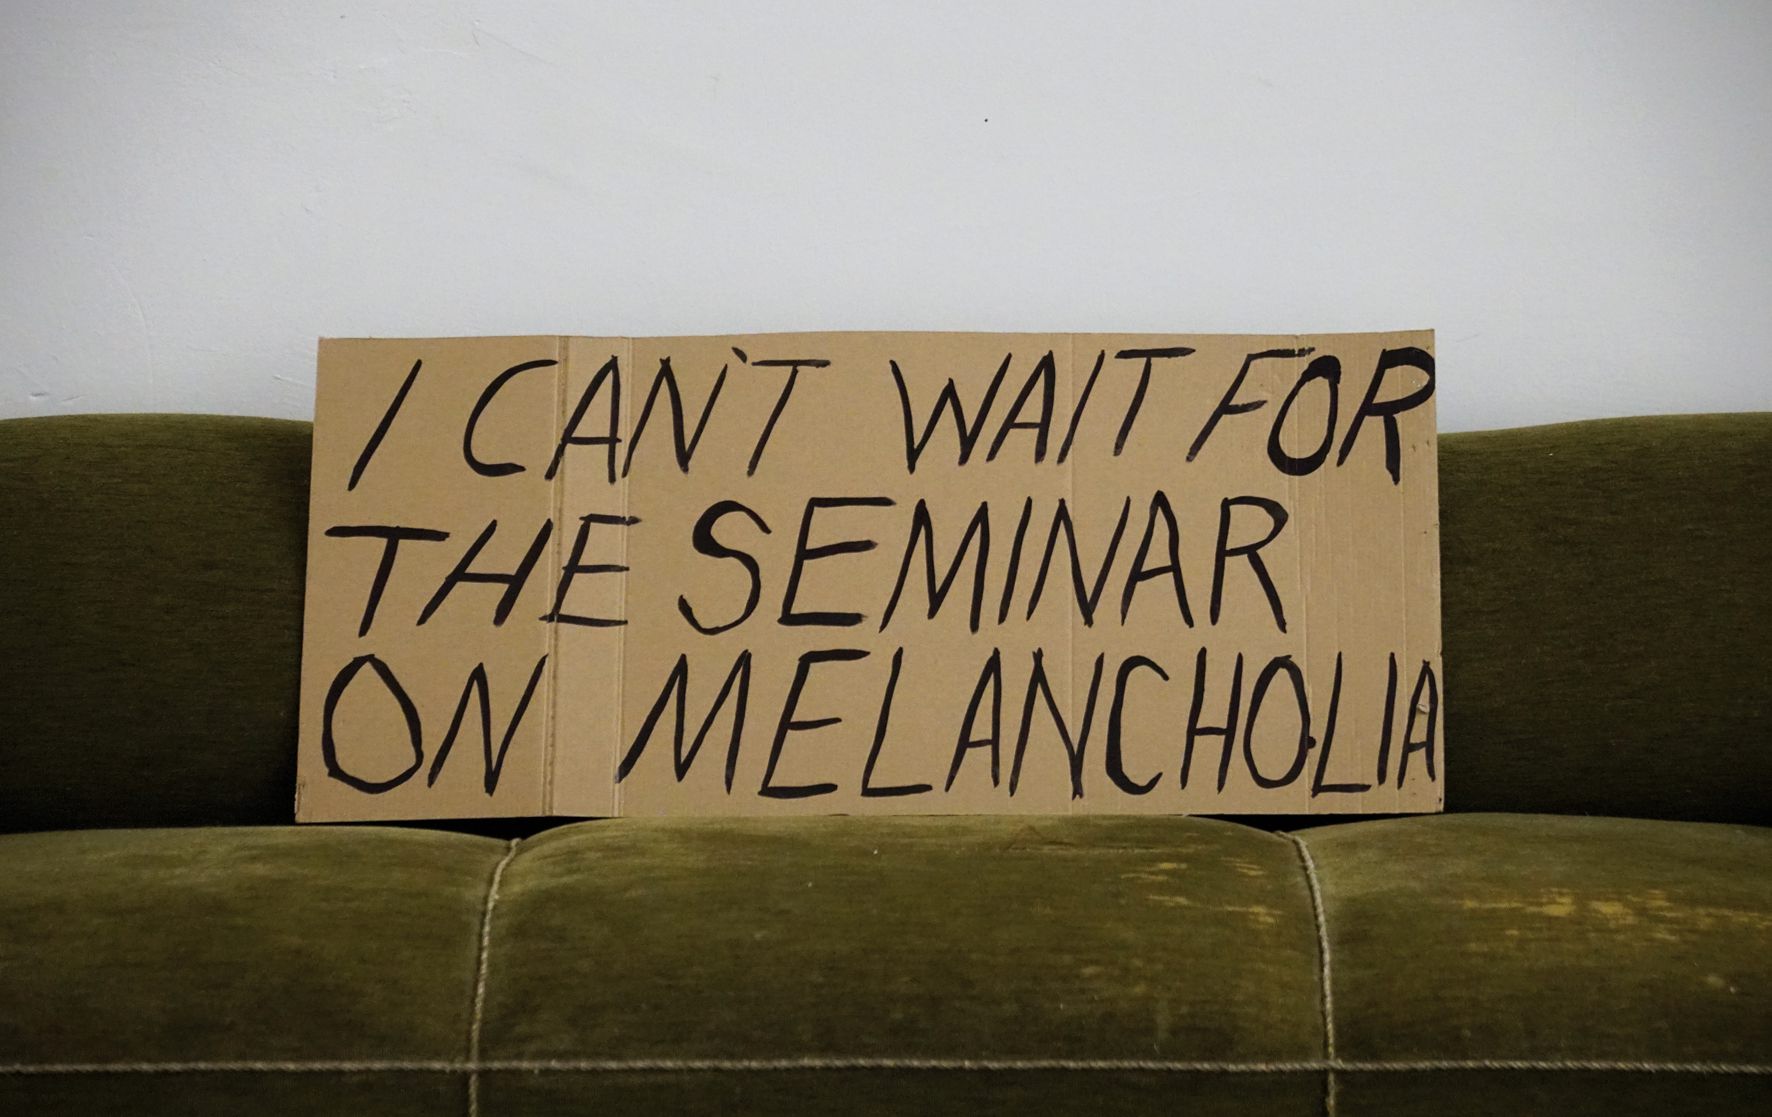 I CAN'T WAIT FOR
THE SEMINAR
ON MELANCHOLIA